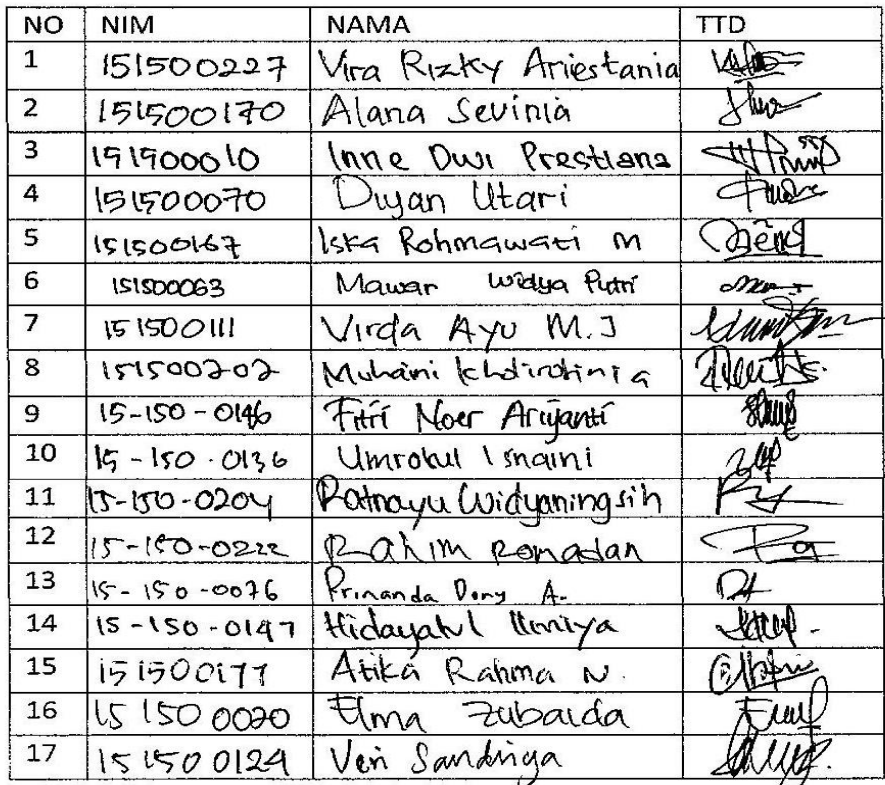 NO NIM NAMA TTD
1 151500227 Vira Rizky Ariestania
2 151500170 Alana Sevinia
3 151500010 Inne Dwi Prestiana
4 151500070 Diyan Utari
5 151500167 Iska Rohmawati M
6 151500063 Mawar Widya Putri
7 151500111 Virda Ayu M.J
8 151500202 Muhaini
9 15-150-0146 Fitri Noer Ariyanti
10 15-150-0136 Umrotul Isnaini
11 15-150-0204 Ratnayu Widyaningsih
12 15-150-0222 Rahim Romadan
13 15-150-0076 Prinanda Dony A.
14 15-150-0147 Hidayatul Ilmiya
15 151500177 Atika Rahma N.
16 151500020 Elma Zubaida
17 151500124 Veri